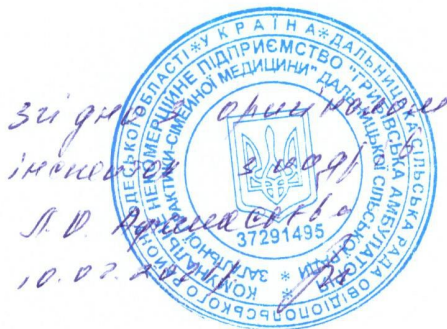 УКРАЇНА * ДАЛЬНИЦЬКА СІЛЬСЬКА РАДА ОВІДІОПОЛЬСЬКОГО РАЙОНУ ОДЕСЬКОЇ ОБЛАСТІ *
КОМУНАЛЬНЕ НЕКОМЕРЦІЙНЕ ПІДПРИЄМСТВО "ГРИБІВСЬКА АМБУЛАТОРІЯ
ЗАГАЛЬНОЇ ПРАКТИКИ-СІМЕЙНОЇ МЕДИЦИНИ" ДАЛЬНИЦЬКОЇ СІЛЬСЬКОЇ РАДИ *
37291495
згідно з оригіналом
інспектор з кадрів
Л.О.
10.02.